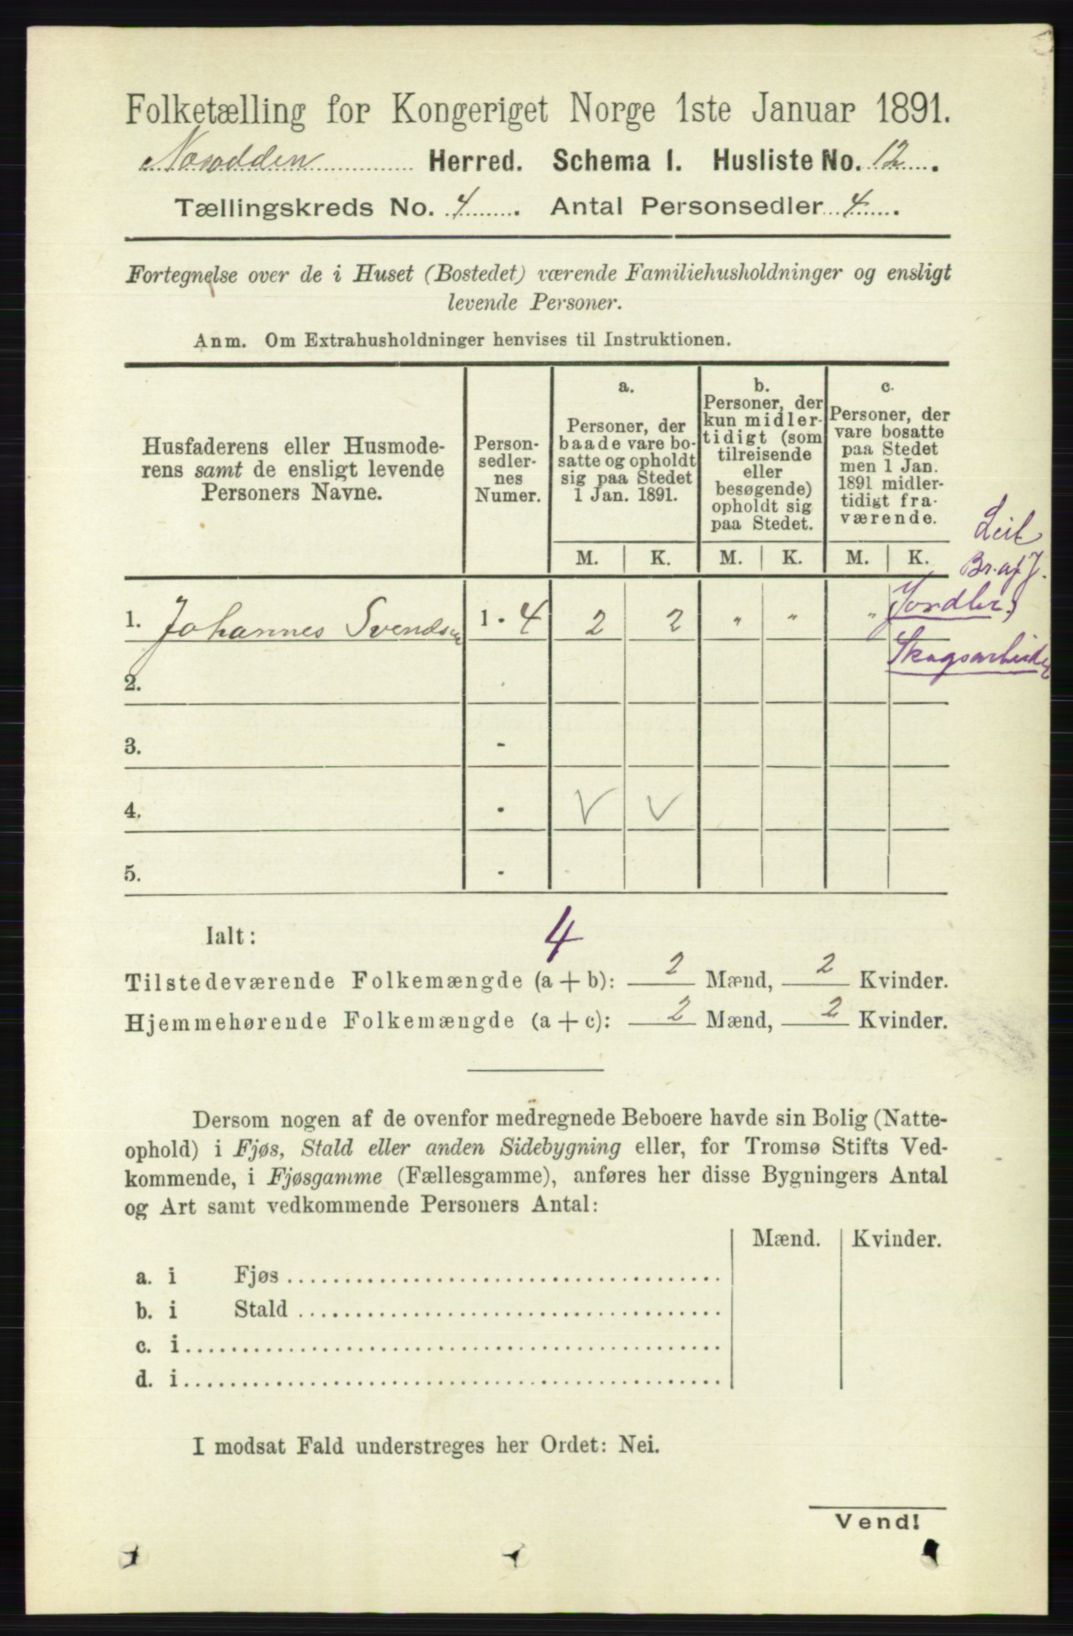 Folketælling for Kongeriget Norge 1ste Januar 1891.
Næsodden Herred. Schema I. Husliste No. 12.
Tællingskreds No. 4. Antal Personsedler 4.
Fortegnelse over de i Huset (Bostedet) værende Familiehusholdninger og ensligt
levende Personer.
Anm. Om Extrahusholdninger henvises til Instruktionen.
Husfaderens eller Husmode-
rens samt de ensligt levende
Personers Navne.
Person-
sedler-
nes
Numer.
a.
Personer, der
baade vare bo-
satte og opholdt
sig paa Stedet
1 Jan. 1891.
b.
Personer, der
kun midler-
tidigt (som
tilreisende
eller
besøgende)
opholdt sig
paa Stedet.
c.
Personer, der
vare bosatte
paa Stedet
men 1 Jan.
1891 midler-
tidigt fra-
værende.
M. K. M. K. M. K.
Leil
Br. af J.
Jordbr.,
Skogsarbeider
1. Johannes Svendsen 1 - 4 2 2 " " "
2.
3. -
4. -
5. -
Ialt: 4
Tilstedeværende Folkemængde (a + b): 2 Mænd, 2 Kvinder.
Hjemmehørende Folkemængde (a + c): 2 Mænd, 2 Kvinder.
Dersom nogen af de ovenfor medregnede Beboere havde sin Bolig (Natte-
ophold) i Fjøs, Stald eller anden Sidebygning eller, for Tromsø Stifts Ved-
kommende, i Fjøsgamme (Fællesgamme), anføres her disse Bygningers Antal
og Art samt vedkommende Personers Antal:
Mænd. Kvinder.
a. i Fjøs
b. i Stald
c. i
d. i
I modsat Fald understreges her Ordet: Nei.
Vend!